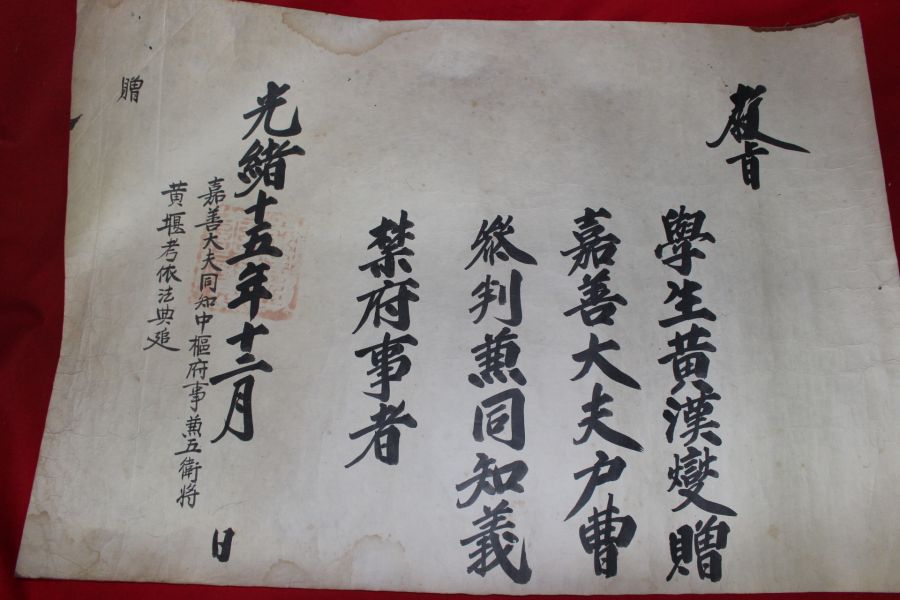 敎旨
學生黃漢燮贈
嘉善大夫户曹
叅判兼同知義
禁府事者
光緖十五年十二月 日
嘉善大夫同知中樞府事兼五衛將
黃堰考依法典追
贈